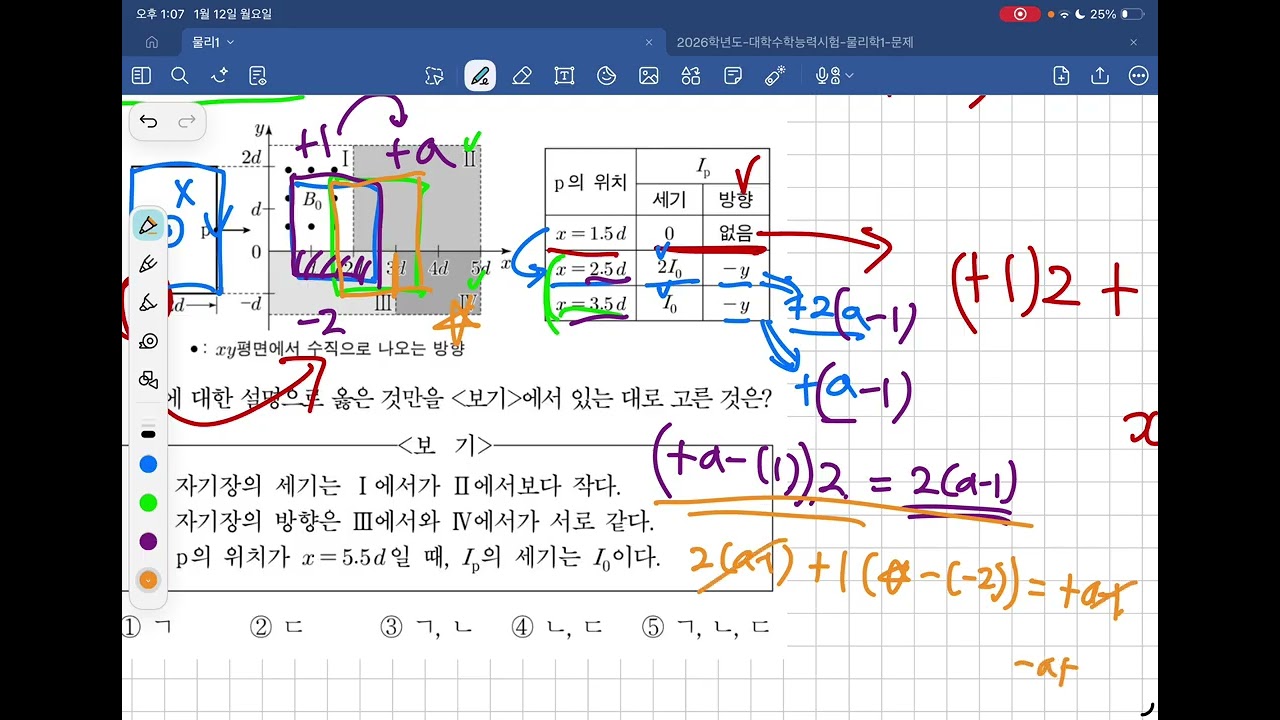 오후 1:07 1월 12일 월요일
25%
물리1
2026학년도-대학수학능력시험-물리학1-문제
y
2d
d
0
-d
+1
+a
I
II
B₀
p
x
3d 4d 5d x
III
IV
-2
p의 위치 Iₚ
세기 방향
x=1.5d 0 없음
x=2.5d 2I₀ -y
x=3.5d I₀ -y
+2(a-1)
+(a-1)
(+1)2 +
• : xy평면에서 수직으로 나오는 방향
에 대한 설명으로 옳은 것만을 <보기>에서 있는 대로 고른 것은?
<보 기>
자기장의 세기는 I에서가 II에서보다 작다.
자기장의 방향은 III에서와 IV에서가 서로 같다.
p의 위치가 x=5.5d일 때, Iₚ의 세기는 I₀이다.
(+a-(1))2 = 2(a-1)
2(a-1) +1( -(-2)) = +a-1
① ㄱ ② ㄷ ③ ㄱ, ㄴ ④ ㄴ, ㄷ ⑤ ㄱ, ㄴ, ㄷ
-a+